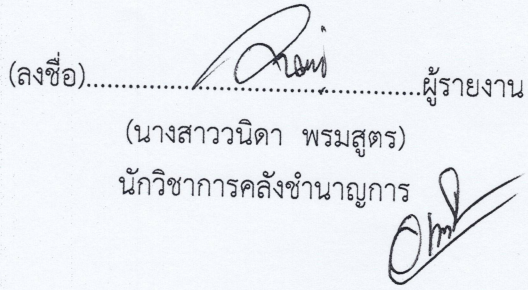 (ลงชื่อ)....................................................ผู้รายงาน
(นางสาววนิดา พรมสูตร)
นักวิชาการคลังชำนาญการ